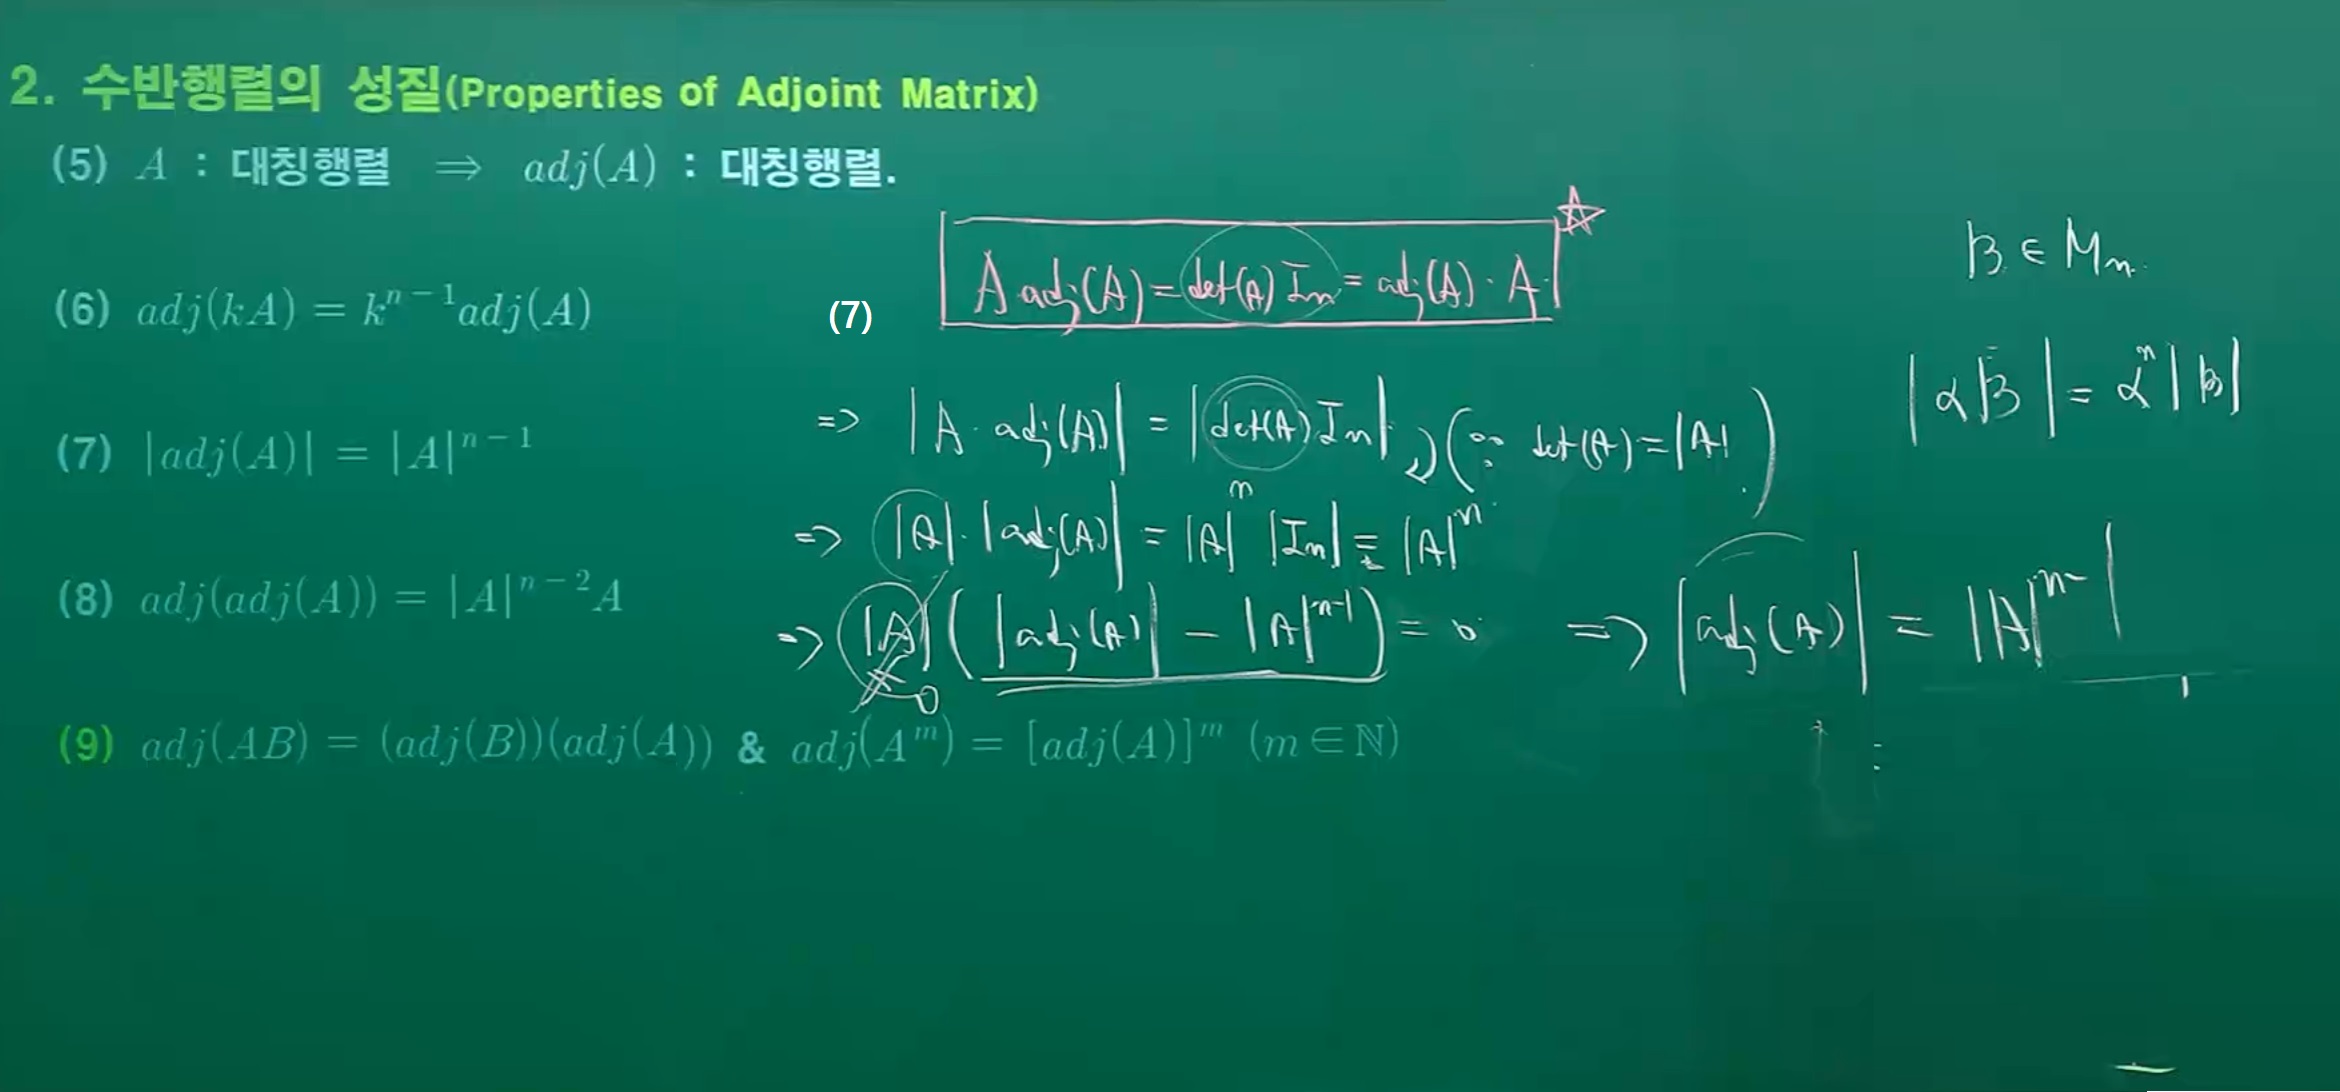 2. 수반행렬의 성질(Properties of Adjoint Matrix)
(5) A : 대칭행렬 ⟹ adj(A) : 대칭행렬.
(6) adj(kA) = k^{n-1}adj(A)
(7) |adj(A)| = |A|^{n-1}
(8) adj(adj(A)) = |A|^{n-2}A
(9) adj(AB) = (adj(B))(adj(A)) & adj(A^m) = [adj(A)]^m (m∈ℕ)
(7) A adj(A) = det(A) In = adj(A) · A ☆
⇒ |A · adj(A)| = |det(A) In| (∵ det(A) = |A|)
⇒ |A| · |adj(A)| = |A|^n |In| = |A|^n
⇒ |A| (|adj(A)| - |A|^{n-1}) = 0 ⇒ |adj(A)| = |A|^{n-1}
≠ 0
B ∈ Mn
|αB| = α^n |B|